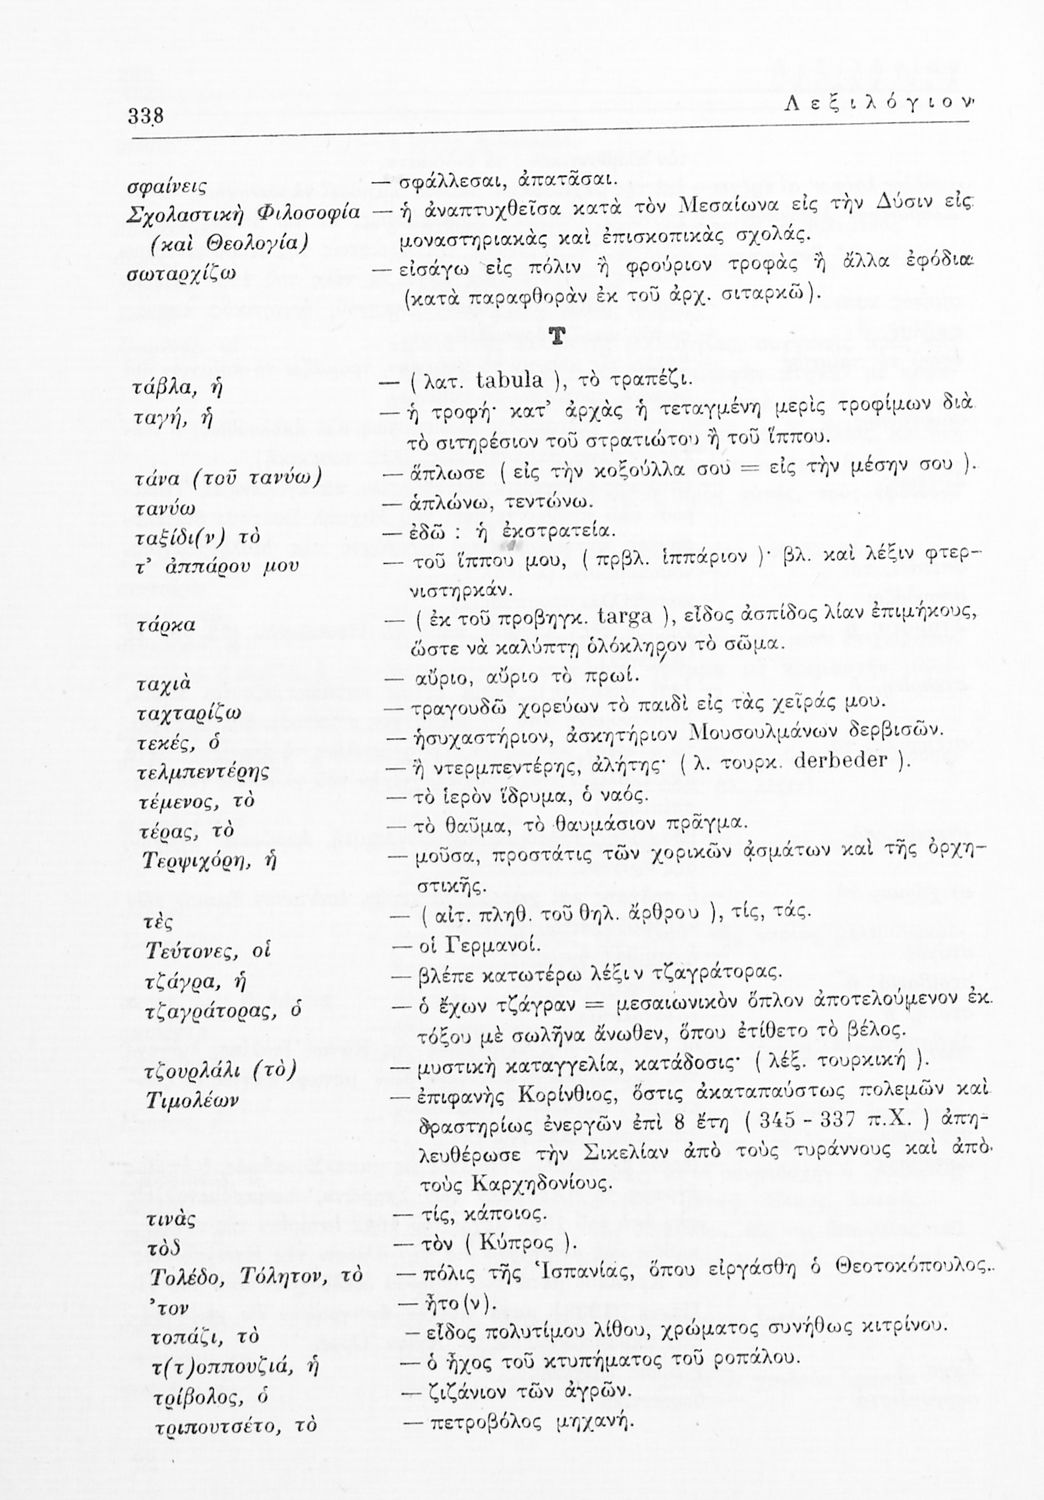 338
Λεξιλόγιον
σφαίνεις — σφάλλεσαι, ἀπατᾶσαι.
Σχολαστικὴ Φιλοσοφία — ἡ ἀναπτυχθεῖσα κατὰ τὸν Μεσαίωνα εἰς τὴν Δύσιν εἰς
(καὶ Θεολογία) μοναστηριακὰς καὶ ἐπισκοπικὰς σχολάς.
σωταρχίζω — εἰσάγω εἰς πόλιν ἢ φρούριον τροφὰς ἢ ἄλλα ἐφόδια
(κατὰ παραφθορὰν ἐκ τοῦ ἀρχ. σιταρκῶ).
Τ
τάβλα, ἡ — ( λατ. tabula ), τὸ τραπέζι.
ταγή, ἡ — ἡ τροφή· κατ’ ἀρχὰς ἡ τεταγμένη μερὶς τροφίμων διὰ
τὸ σιτηρέσιον τοῦ στρατιώτου ἢ τοῦ ἵππου.
τάνα (τοῦ τανύω) — ἅπλωσε ( εἰς τὴν κοξούλλα σου = εἰς τὴν μέσην σου ).
τανύω — ἁπλώνω, τεντώνω.
ταξίδι(ν) τὸ — ἐδῶ : ἡ ἐκστρατεία.
τ’ ἀππάρου μου — τοῦ ἵππου μου, ( πρβλ. ἱππάριον )· βλ. καὶ λέξιν φτερ-
νιστηρκάν.
τάρκα — ( ἐκ τοῦ προβηγκ. targa ), εἶδος ἀσπίδος λίαν ἐπιμήκους,
ὥστε νὰ καλύπτῃ ὁλόκληρον τὸ σῶμα.
ταχιὰ — αὔριο, αὔριο τὸ πρωί.
ταχταρίζω — τραγουδῶ χορεύων τὸ παιδὶ εἰς τὰς χεῖράς μου.
τεκές, ὁ — ἡσυχαστήριον, ἀσκητήριον Μουσουλμάνων δερβισῶν.
τελμπεντέρης — ἢ ντερμπεντέρης, ἀλήτης· ( λ. τουρκ. derbeder ).
τέμενος, τὸ — τὸ ἱερὸν ἵδρυμα, ὁ ναός.
τέρας, τὸ — τὸ θαῦμα, τὸ θαυμάσιον πρᾶγμα.
Τερψιχόρη, ἡ — μοῦσα, προστάτις τῶν χορικῶν ᾀσμάτων καὶ τῆς ὀρχη-
στικῆς.
τὲς — ( αἰτ. πληθ. τοῦ θηλ. ἄρθρου ), τίς, τάς.
Τεύτονες, οἱ — οἱ Γερμανοί.
τζάγρα, ἡ — βλέπε κατωτέρω λέξιν τζαγράτορας.
τζαγράτορας, ὁ — ὁ ἔχων τζάγραν = μεσαιωνικὸν ὅπλον ἀποτελούμενον ἐκ
τόξου μὲ σωλῆνα ἄνωθεν, ὅπου ἐτίθετο τὸ βέλος.
τζουρλάλι (τὸ) — μυστικὴ καταγγελία, κατάδοσις· ( λέξ. τουρκική ).
Τιμολέων — ἐπιφανὴς Κορίνθιος, ὅστις ἀκαταπαύστως πολεμῶν καὶ
δραστηρίως ἐνεργῶν ἐπὶ 8 ἔτη ( 345 - 337 π.Χ. ) ἀπη-
λευθέρωσε τὴν Σικελίαν ἀπὸ τοὺς τυράννους καὶ ἀπὸ
τοὺς Καρχηδονίους.
τινὰς — τίς, κάποιος.
τὸδ — τὸν ( Κύπρος ).
Τολέδο, Τόλητον, τὸ — πόλις τῆς Ἱσπανίας, ὅπου εἰργάσθη ὁ Θεοτοκόπουλος.
’τον — ἦτο(ν).
τοπάζι, τὸ — εἶδος πολυτίμου λίθου, χρώματος συνήθως κιτρίνου.
τ(τ)οππουζιά, ἡ — ὁ ἦχος τοῦ κτυπήματος τοῦ ροπάλου.
τρίβολος, ὁ — ζιζάνιον τῶν ἀγρῶν.
τριπουτσέτο, τὸ — πετροβόλος μηχανή.